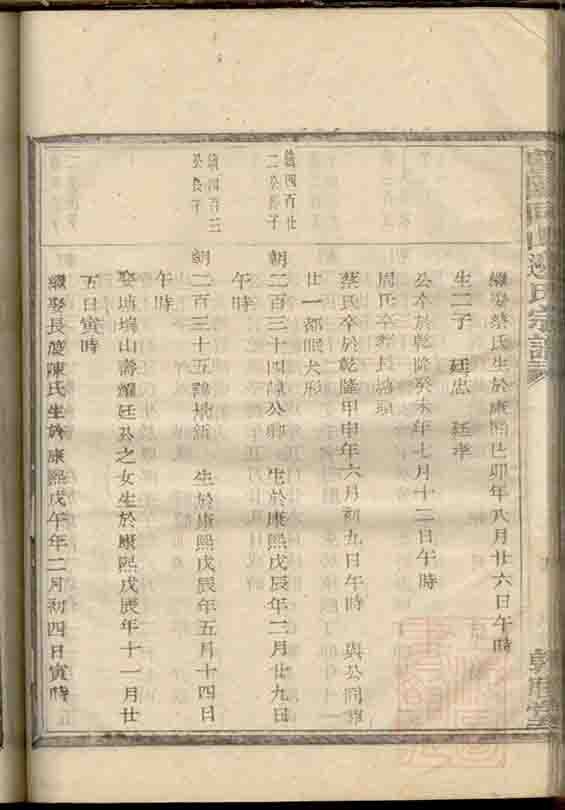 氏宗譜
繼娶蔡氏生於康熙己卯年八月廿六日午時
生二子 廷忠 廷孝
公卒於乾隆癸未年七月十二日午時
周氏卒葬長塘頭
蔡氏卒於乾隆甲申年六月初九日午時 與公同葬
廿一都眠犬形
第四百廿
二公長子
朝二百三十四諱公卿 生於康熙戊辰年二月廿九日
午時
第四百三
公長子
朝二百三十五諱地新 生於康熙戊辰年五月十四日
午時
娶塘塢山壽耀廷公之女生於康熙戊辰年十一月廿
五日寅時
繼娶長慶陳氏生於康熙戊午年二月初四日寅時